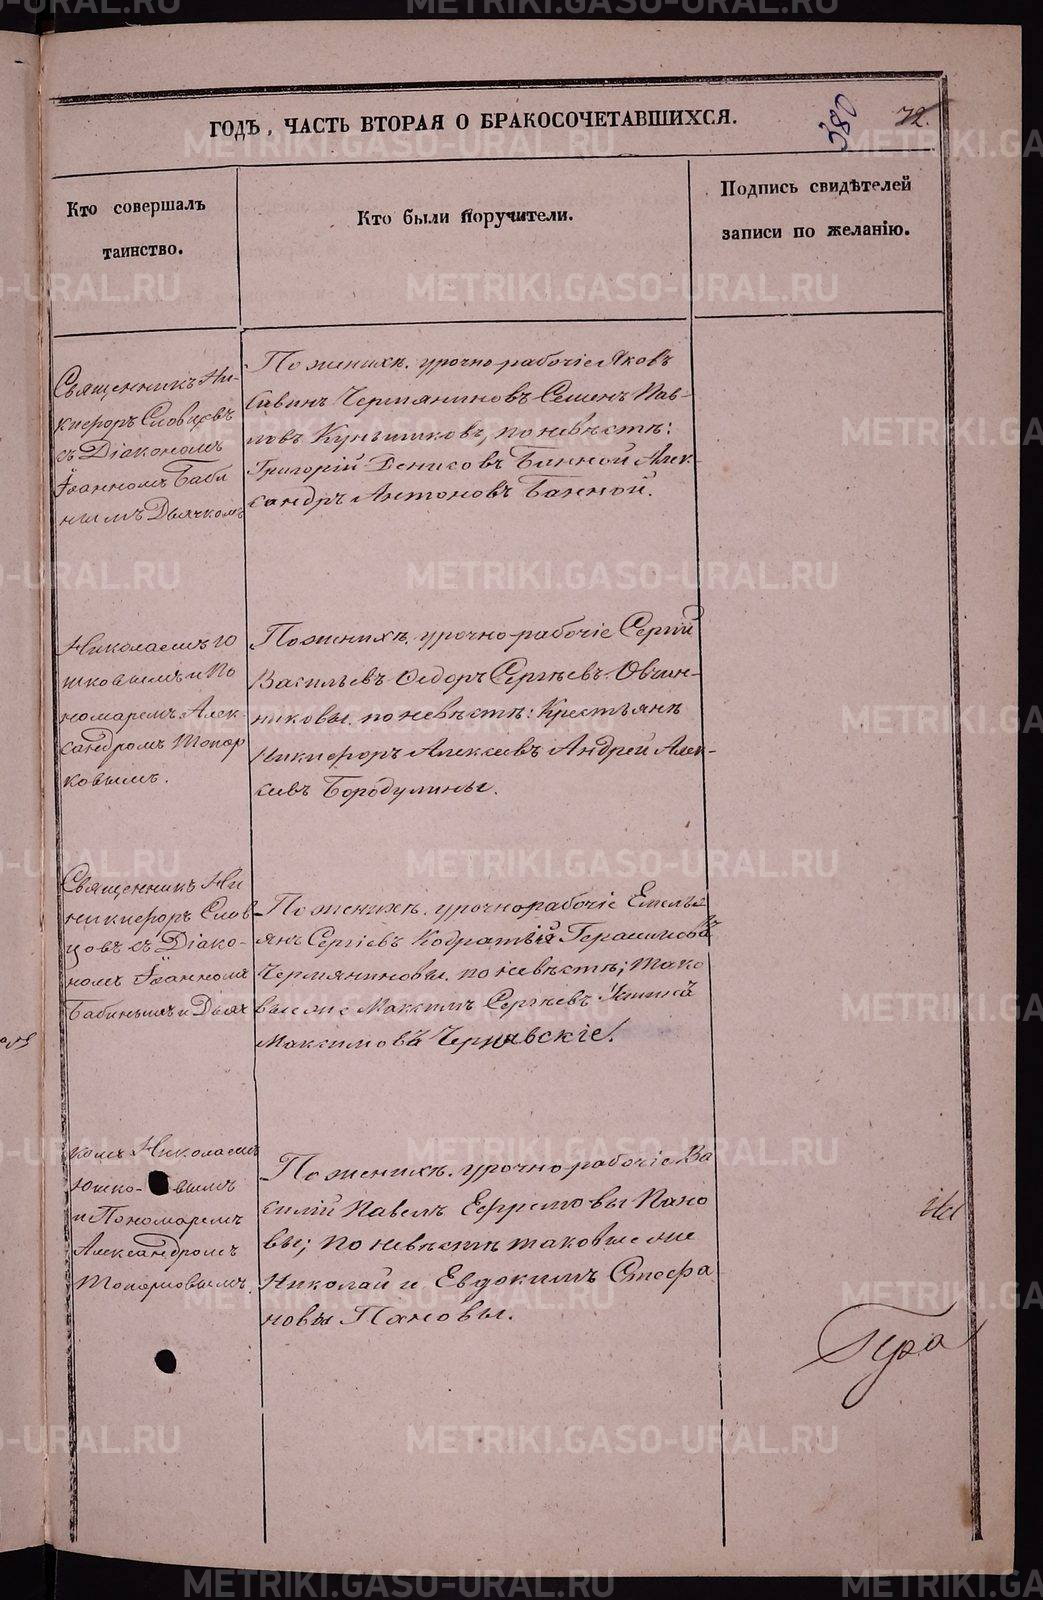 ГОДЪ, ЧАСТЬ ВТОРАЯ О БРАКОСОЧЕТАВШИХСЯ.
380
72.
Кто совершалъ
таинство.
Кто были поручители.
Подпись свидѣтелей
записи по желанію.
Священникъ Ни-
кифоръ Словцевъ
съ Діакономъ
Іоанномъ Баби
нымъ Дьячкомъ
По женихѣ. урочно-рабочіе Яковъ
Савинъ Чермяниновъ Семенъ Пав-
ловъ Куньшиковъ, по невѣстѣ:
Григорій Денисовъ Банной Алек-
сандръ Антоновъ Банной.
Николаемъ Ю
шковымъ и По
номаремъ Алек-
сандромъ Топор
ковымъ.
По женихѣ. урочно-рабочіе Сергѣй
Васильевъ Ѳедоръ Сергѣевъ Овчин-
никовы. по невѣстѣ: Крестьянѣ
Никифоръ Алексѣевъ Андрей Алек-
сѣевъ Бородулины.
Священникъ Ни
никифоръ Слов
цовъ съ Діако-
номъ Іоанномъ
Бабинымъ и Дьяч
По женихѣ. урочнорабочіе Емель
янъ Сергіевъ Кодратій Герасимовъ
Чермяниновы. по невѣстѣ; тако
вые же Максимъ Сергѣевъ Устинъ
Максимовъ Чернавскіе.
комъ Николаемъ
Юшко-вымъ
и Пономаремъ
Александромъ
Топорковымъ.
По женихѣ. урочно рабочіе Ва
силій Павелъ Ефремовы Пано
вы; по невѣстѣ таковые же
Николай и Евдокимъ Стефа
новы Пановы.
METRIKI.GASO-URAL.RU